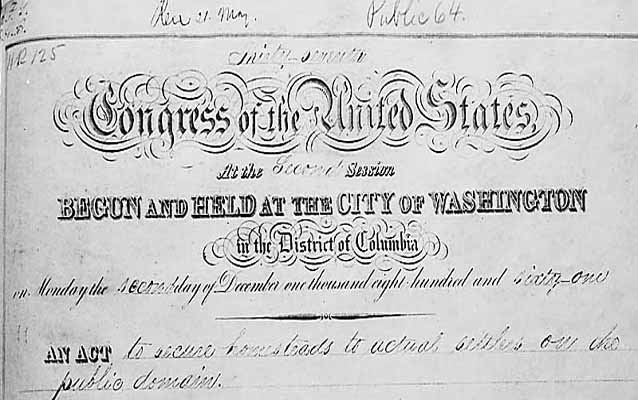 21. May. Public 64.
Thirty-seventh
Congress of the United States,
At the Second Session
BEGUN AND HELD AT THE CITY OF WASHINGTON
in the District of Columbia
on Monday the second day of December one thousand eight hundred and sixty-one
AN ACT to secure homesteads to actual settlers on the
public domain.